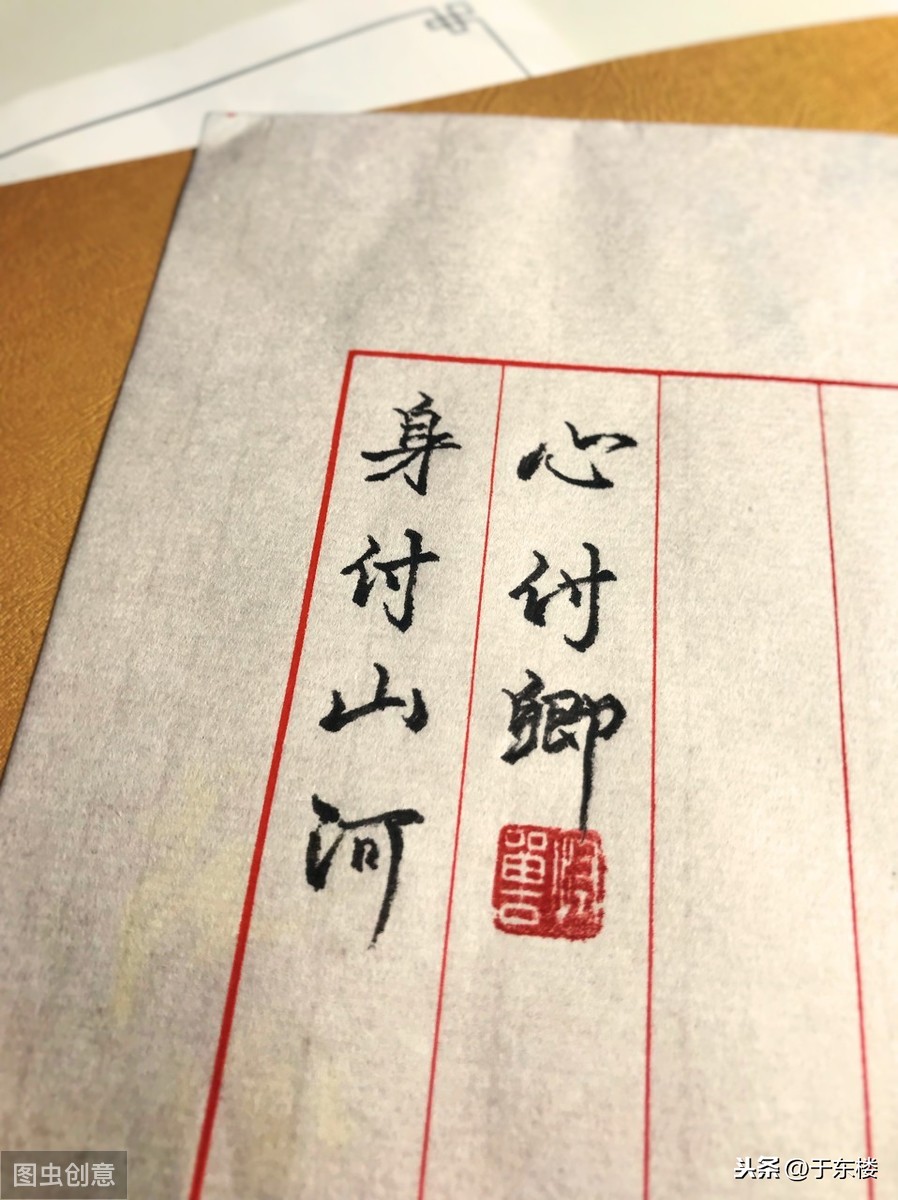 身付山河
心付卿
图虫创意
头条 @于东楼